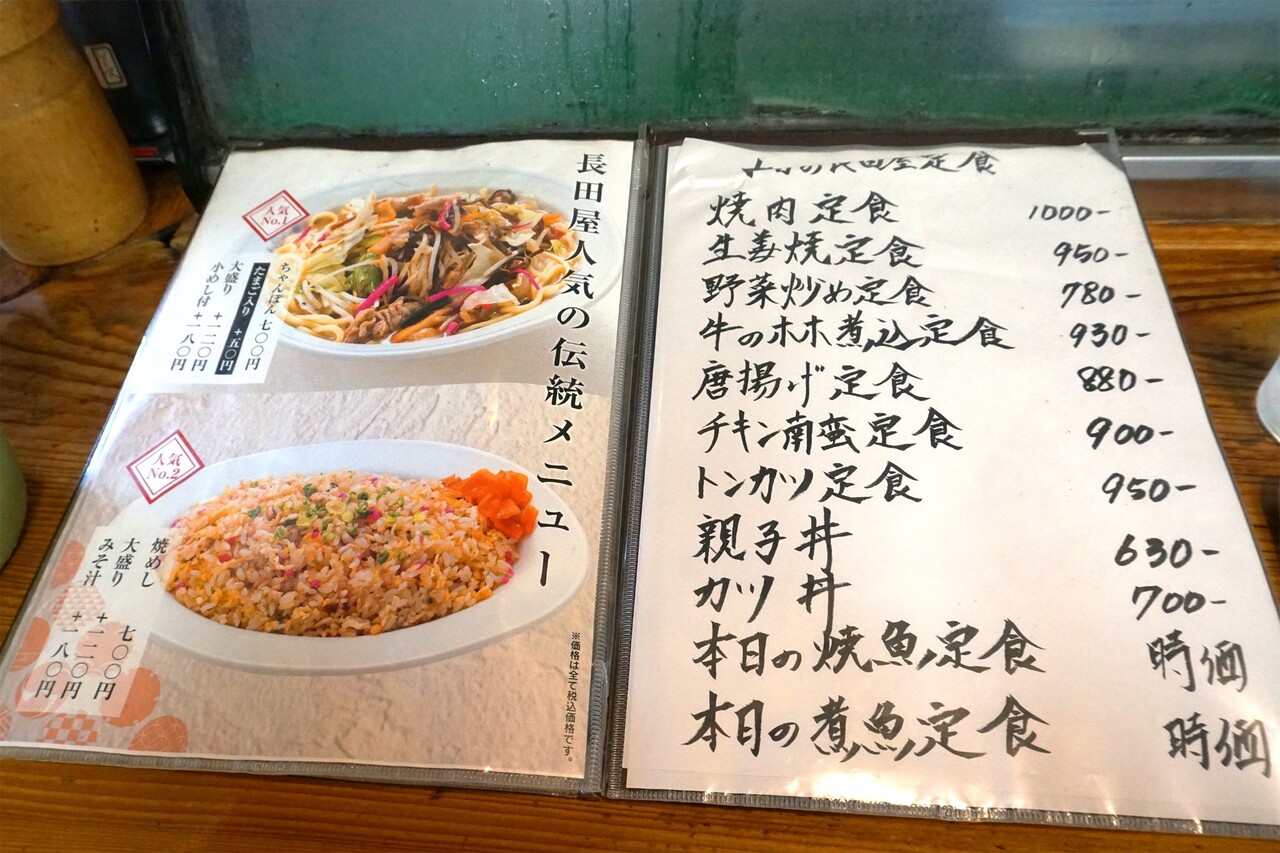 長田屋人気の伝統メニュー
人気
No.1
ちゃんぽん 七〇〇円
たまご入り +五〇円
大盛り +一二〇円
小めし付 +一八〇円
人気
No.2
焼めし 七〇〇円
大盛り +一二〇円
みそ汁 +一八〇円
※価格は全て税込価格です。
長田屋定食
焼肉定食 1000-
生姜焼定食 950-
野菜炒め定食 780-
牛のホホ煮込定食 930-
唐揚げ定食 880-
チキン南蛮定食 900-
トンカツ定食 950-
親子丼 630-
カツ丼 700-
本日の焼魚定食 時価
本日の煮魚定食 時価